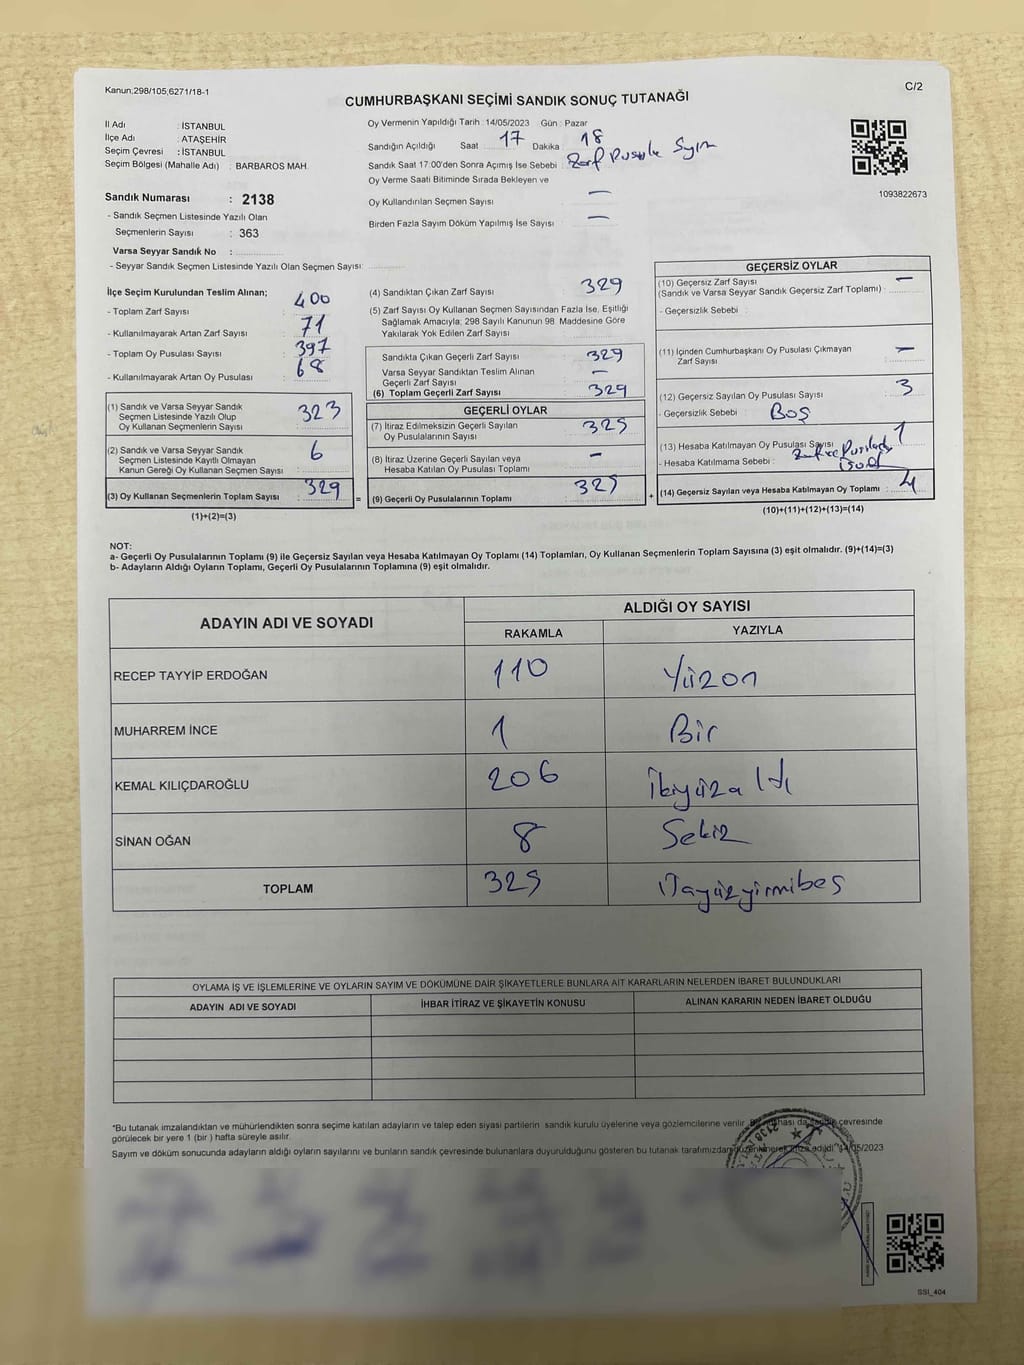 Kanun:298/105,6271/18-1
C/2
CUMHURBAŞKANI SEÇİMİ SANDIK SONUÇ TUTANAĞI
İl Adı : İSTANBUL
İlçe Adı : ATAŞEHİR
Seçim Çevresi : İSTANBUL
Seçim Bölgesi (Mahalle Adı) : BARBAROS MAH.
Oy Vermenin Yapıldığı Tarih : 14/05/2023 Gün : Pazar
Sandığın Açıldığı Saat 17 Dakika 18
Sandık Saat 17:00'den Sonra Açımış İse Sebebi : Zarf Pusula Sayım
Oy Verme Saati Bitiminde Sırada Bekleyen ve
Oy Kullandırılan Seçmen Sayısı —
Birden Fazla Sayım Döküm Yapılmış İse Sayısı —
1093822673
Sandık Numarası : 2138
- Sandık Seçmen Listesinde Yazılı Olan
Seçmenlerin Sayısı : 363
Varsa Seyyar Sandık No :
- Seyyar Sandık Seçmen Listesinde Yazılı Olan Seçmen Sayısı:
İlçe Seçim Kurulundan Teslim Alınan;
- Toplam Zarf Sayısı : 400
- Kullanılmayarak Artan Zarf Sayısı : 71
- Toplam Oy Pusulası Sayısı : 397
- Kullanılmayarak Artan Oy Pusulası : 68
(1) Sandık ve Varsa Seyyar Sandık
Seçmen Listesinde Yazılı Olup
Oy Kullanan Seçmenlerin Sayısı : 323
(2) Sandık ve Varsa Seyyar Sandık
Seçmen Listesinde Kayıtlı Olmayan
Kanun Gereği Oy Kullanan Seçmen Sayısı : 6
(3) Oy Kullanan Seçmenlerin Toplam Sayısı : 329
(1)+(2)=(3)
(4) Sandıktan Çıkan Zarf Sayısı : 329
(5) Zarf Sayısı Oy Kullanan Seçmen Sayısından Fazla İse, Eşitliği
Sağlamak Amacıyla; 298 Sayılı Kanunun 98. Maddesine Göre
Yakılarak Yok Edilen Zarf Sayısı
Sandıkta Çıkan Geçerli Zarf Sayısı : 329
Varsa Seyyar Sandıktan Teslim Alınan
Geçerli Zarf Sayısı : —
(6) Toplam Geçerli Zarf Sayısı : 329
GEÇERLİ OYLAR
(7) İtiraz Edilmeksizin Geçerli Sayılan
Oy Pusulalarının Sayısı : 325
(8) İtiraz Üzerine Geçerli Sayılan veya
Hesaba Katılan Oy Pusulası Toplamı : —
= (9) Geçerli Oy Pusulalarının Toplamı : 325
GEÇERSİZ OYLAR
(10) Geçersiz Zarf Sayısı
(Sandık ve Varsa Seyyar Sandık Geçersiz Zarf Toplamı) : —
- Geçersizlik Sebebi :
(11) İçinden Cumhurbaşkanı Oy Pusulası Çıkmayan
Zarf Sayısı : —
(12) Geçersiz Sayılan Oy Pusulası Sayısı : 3
- Geçersizlik Sebebi : Boş
(13) Hesaba Katılmayan Oy Pusulası Sayısı 1
- Hesaba Katılmama Sebebi :
+ (14) Geçersiz Sayılan veya Hesaba Katılmayan Oy Toplamı : 4
(10)+(11)+(12)+(13)=(14)
NOT:
a- Geçerli Oy Pusulalarının Toplamı (9) ile Geçersiz Sayılan veya Hesaba Katılmayan Oy Toplamı (14) Toplamları, Oy Kullanan Seçmenlerin Toplam Sayısına (3) eşit olmalıdır. (9)+(14)=(3)
b- Adayların Aldığı Oyların Toplamı, Geçerli Oy Pusulalarının Toplamına (9) eşit olmalıdır.
ADAYIN ADI VE SOYADI
ALDIĞI OY SAYISI
RAKAMLA YAZIYLA
RECEP TAYYİP ERDOĞAN 110 Yüzon
MUHARREM İNCE 1 Bir
KEMAL KILIÇDAROĞLU 206 İkiyüzaltı
SİNAN OĞAN 8 Sekiz
TOPLAM 325 Üçyüzyirmibeş
OYLAMA İŞ VE İŞLEMLERİNE VE OYLARIN SAYIM VE DÖKÜMÜNE DAİR ŞİKAYETLERLE BUNLARA AİT KARARLARIN NELERDEN İBARET BULUNDUKLARI
ADAYIN ADI VE SOYADI İHBAR İTİRAZ VE ŞİKAYETİN KONUSU ALINAN KARARIN NEDEN İBARET OLDUĞU
*Bu tutanak imzalandıktan ve mühürlendikten sonra seçime katılan adayların ve talep eden siyasi partilerin sandık kurulu üyelerine veya gözlemcilerine verilir. Bir nüshası da sandık çevresinde
görülecek bir yere 1 (bir ) hafta süreyle asılır.
Sayım ve döküm sonucunda adayların aldığı oyların sayılarını ve bunların sandık çevresinde bulunanlara duyurulduğunu gösteren bu tutanak tarafımızdan düzenlenerek imza edildi. 14/05/2023
SSI_404